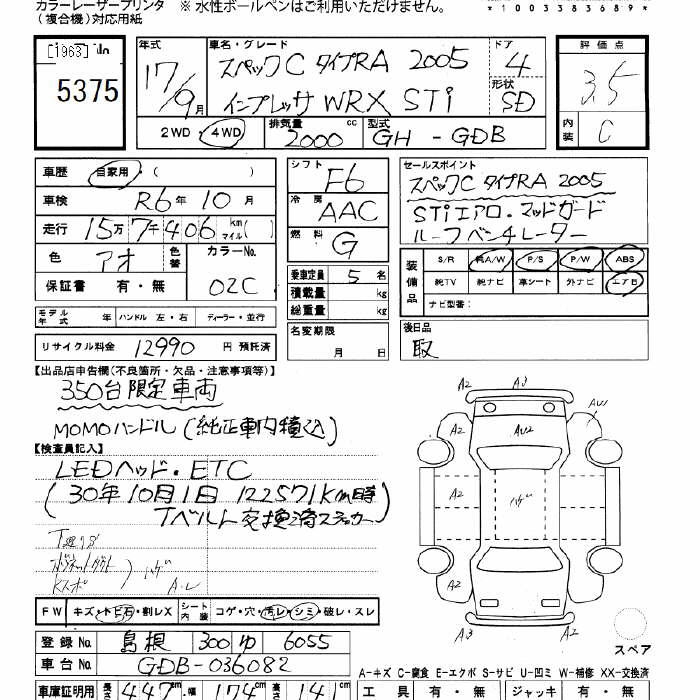 カラーレーザープリンタ ※ 水性ボールペンはご利用いただけません。
(複合機)対応用紙
*1003383689*
[1963]
5375
年式 17/9月
車名・グレード スペックC タイプRA 2005
インプレッサ WRX STi
ドア 4
形状 SD
評価点 3.5
内装 C
2WD・4WD
排気量 2000 cc
型式 GH-GDB
車歴 自家用・( )
車検 R6年 10月
走行 15万7千406 km(マイル)
色 アオ 色替 カラーNo. 02C
保証書 有・無
モデル年式 年 ハンドル 左・右 ディーラー・並行
リサイクル料金 12990 円 預託済
シフト F6
冷房 AAC
燃料 G
乗車定員 5 名
積載量 kg
総重量 kg
名変期限 月 日
セールスポイント
スペックC タイプRA 2005
STiエアロ・マッドガード
ルーフベンチレーター
装備品 S/R 純A/W P/S P/W ABS
純TV 純ナビ 革シート 外ナビ エアB
ナビ型番:
後日品
取
【出品店申告欄(不良箇所・欠品・注意事項等)】
350台限定車両
MOMOハンドル(純正車内積込)
【検査員記入】
LEDヘッド・ETC
(30年10月1日 122571km時
Tベルト交換済ステッカー)
Kスポ ハゲ
A2 A3
A2 AU2 AU1
A2 ハゲ
A2 A2
A3 A2
スペア
FW キズ・トビ石・割レX シート内装 コゲ・穴・汚レ・シミ・破レ・スレ
登録No. 島根 300 ゆ 6055
車台No. GDB-036082
A-キズ C-腐食 E-エクボ S-サビ U-凹ミ W-補修 XX-交換済
車庫証明用 長さ 447 cm 幅 174 cm 高さ 141
工具 有・無 ジャッキ 有・無